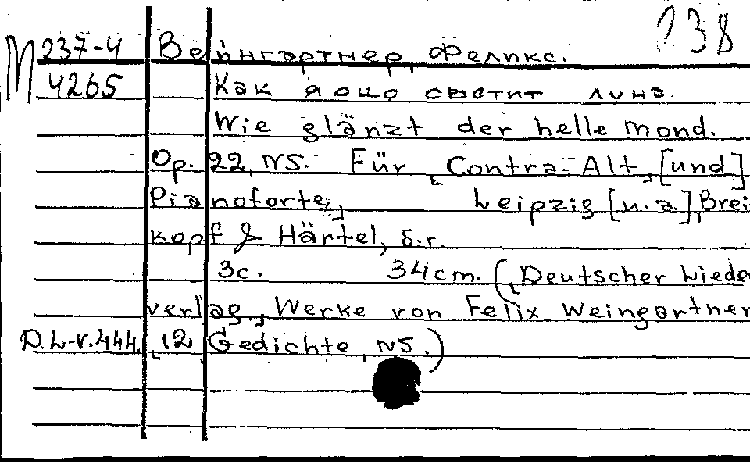 238
М 237-4 Вейнгартнер, Феликс.
4265 Как ясно светит луна.
Wie glänzt der helle Mond.
Op. 22, N5. Für "Contra-Alt" [und]
Pianoforte, Leipzig [u.a], Brei
kopf & Härtel, s.r.
3c. 34cm. ("Deutscher Liede
verlag", Werke von Felix Weingartner
D.L-v.444. 12 Gedichte, N5.)